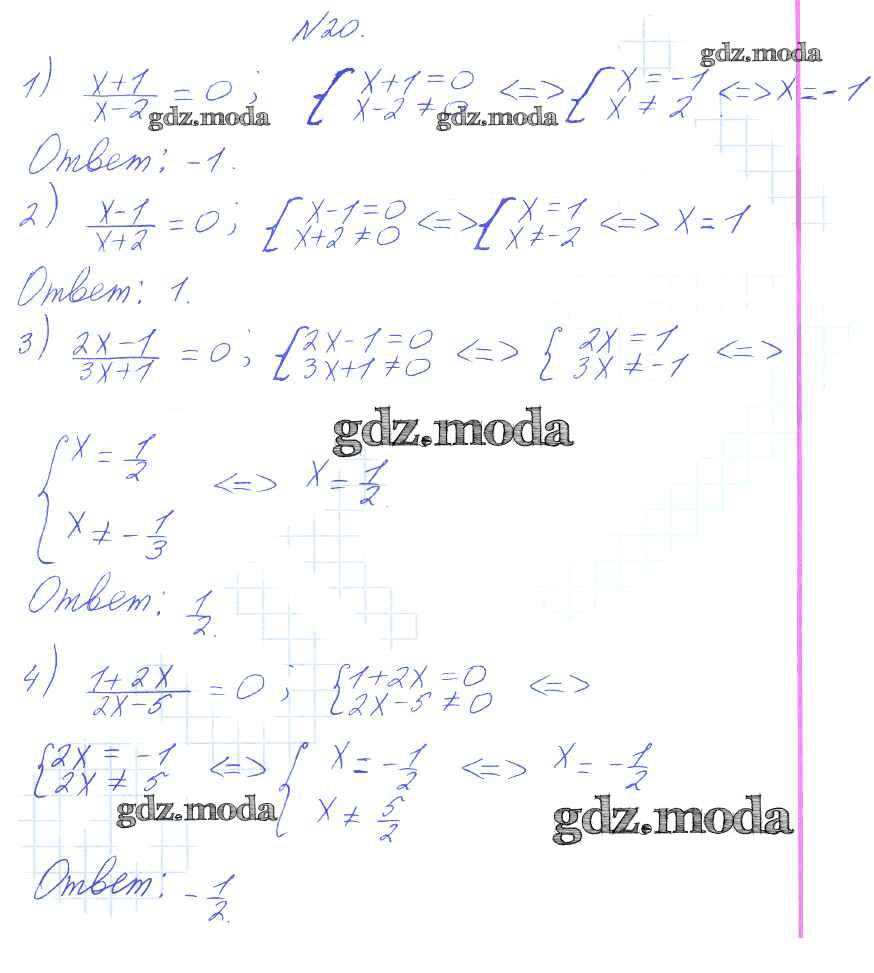 N20.
gdz.moda
1) x+1/x-2 = 0; { x+1=0 x-2≠0 <=> { x=-1 x≠2 <=> x=-1
gdz.moda gdz.moda
Ответ: -1.
2) x-1/x+2 = 0; { x-1=0 x+2≠0 <=> { x=1 x≠-2 <=> x=1
Ответ: 1.
3) 2x-1/3x+1 = 0; { 2x-1=0 3x+1≠0 <=> { 2x=1 3x≠-1 <=>
gdz.moda
{ x=1/2 x≠-1/3 <=> x=1/2.
Ответ: 1/2.
4) 1+2x/2x-5 = 0; { 1+2x=0 2x-5≠0 <=>
{ 2x=-1 2x≠5 <=> { x=-1/2 x≠5/2 <=> x=-1/2
gdz.moda gdz.moda
Ответ: -1/2.